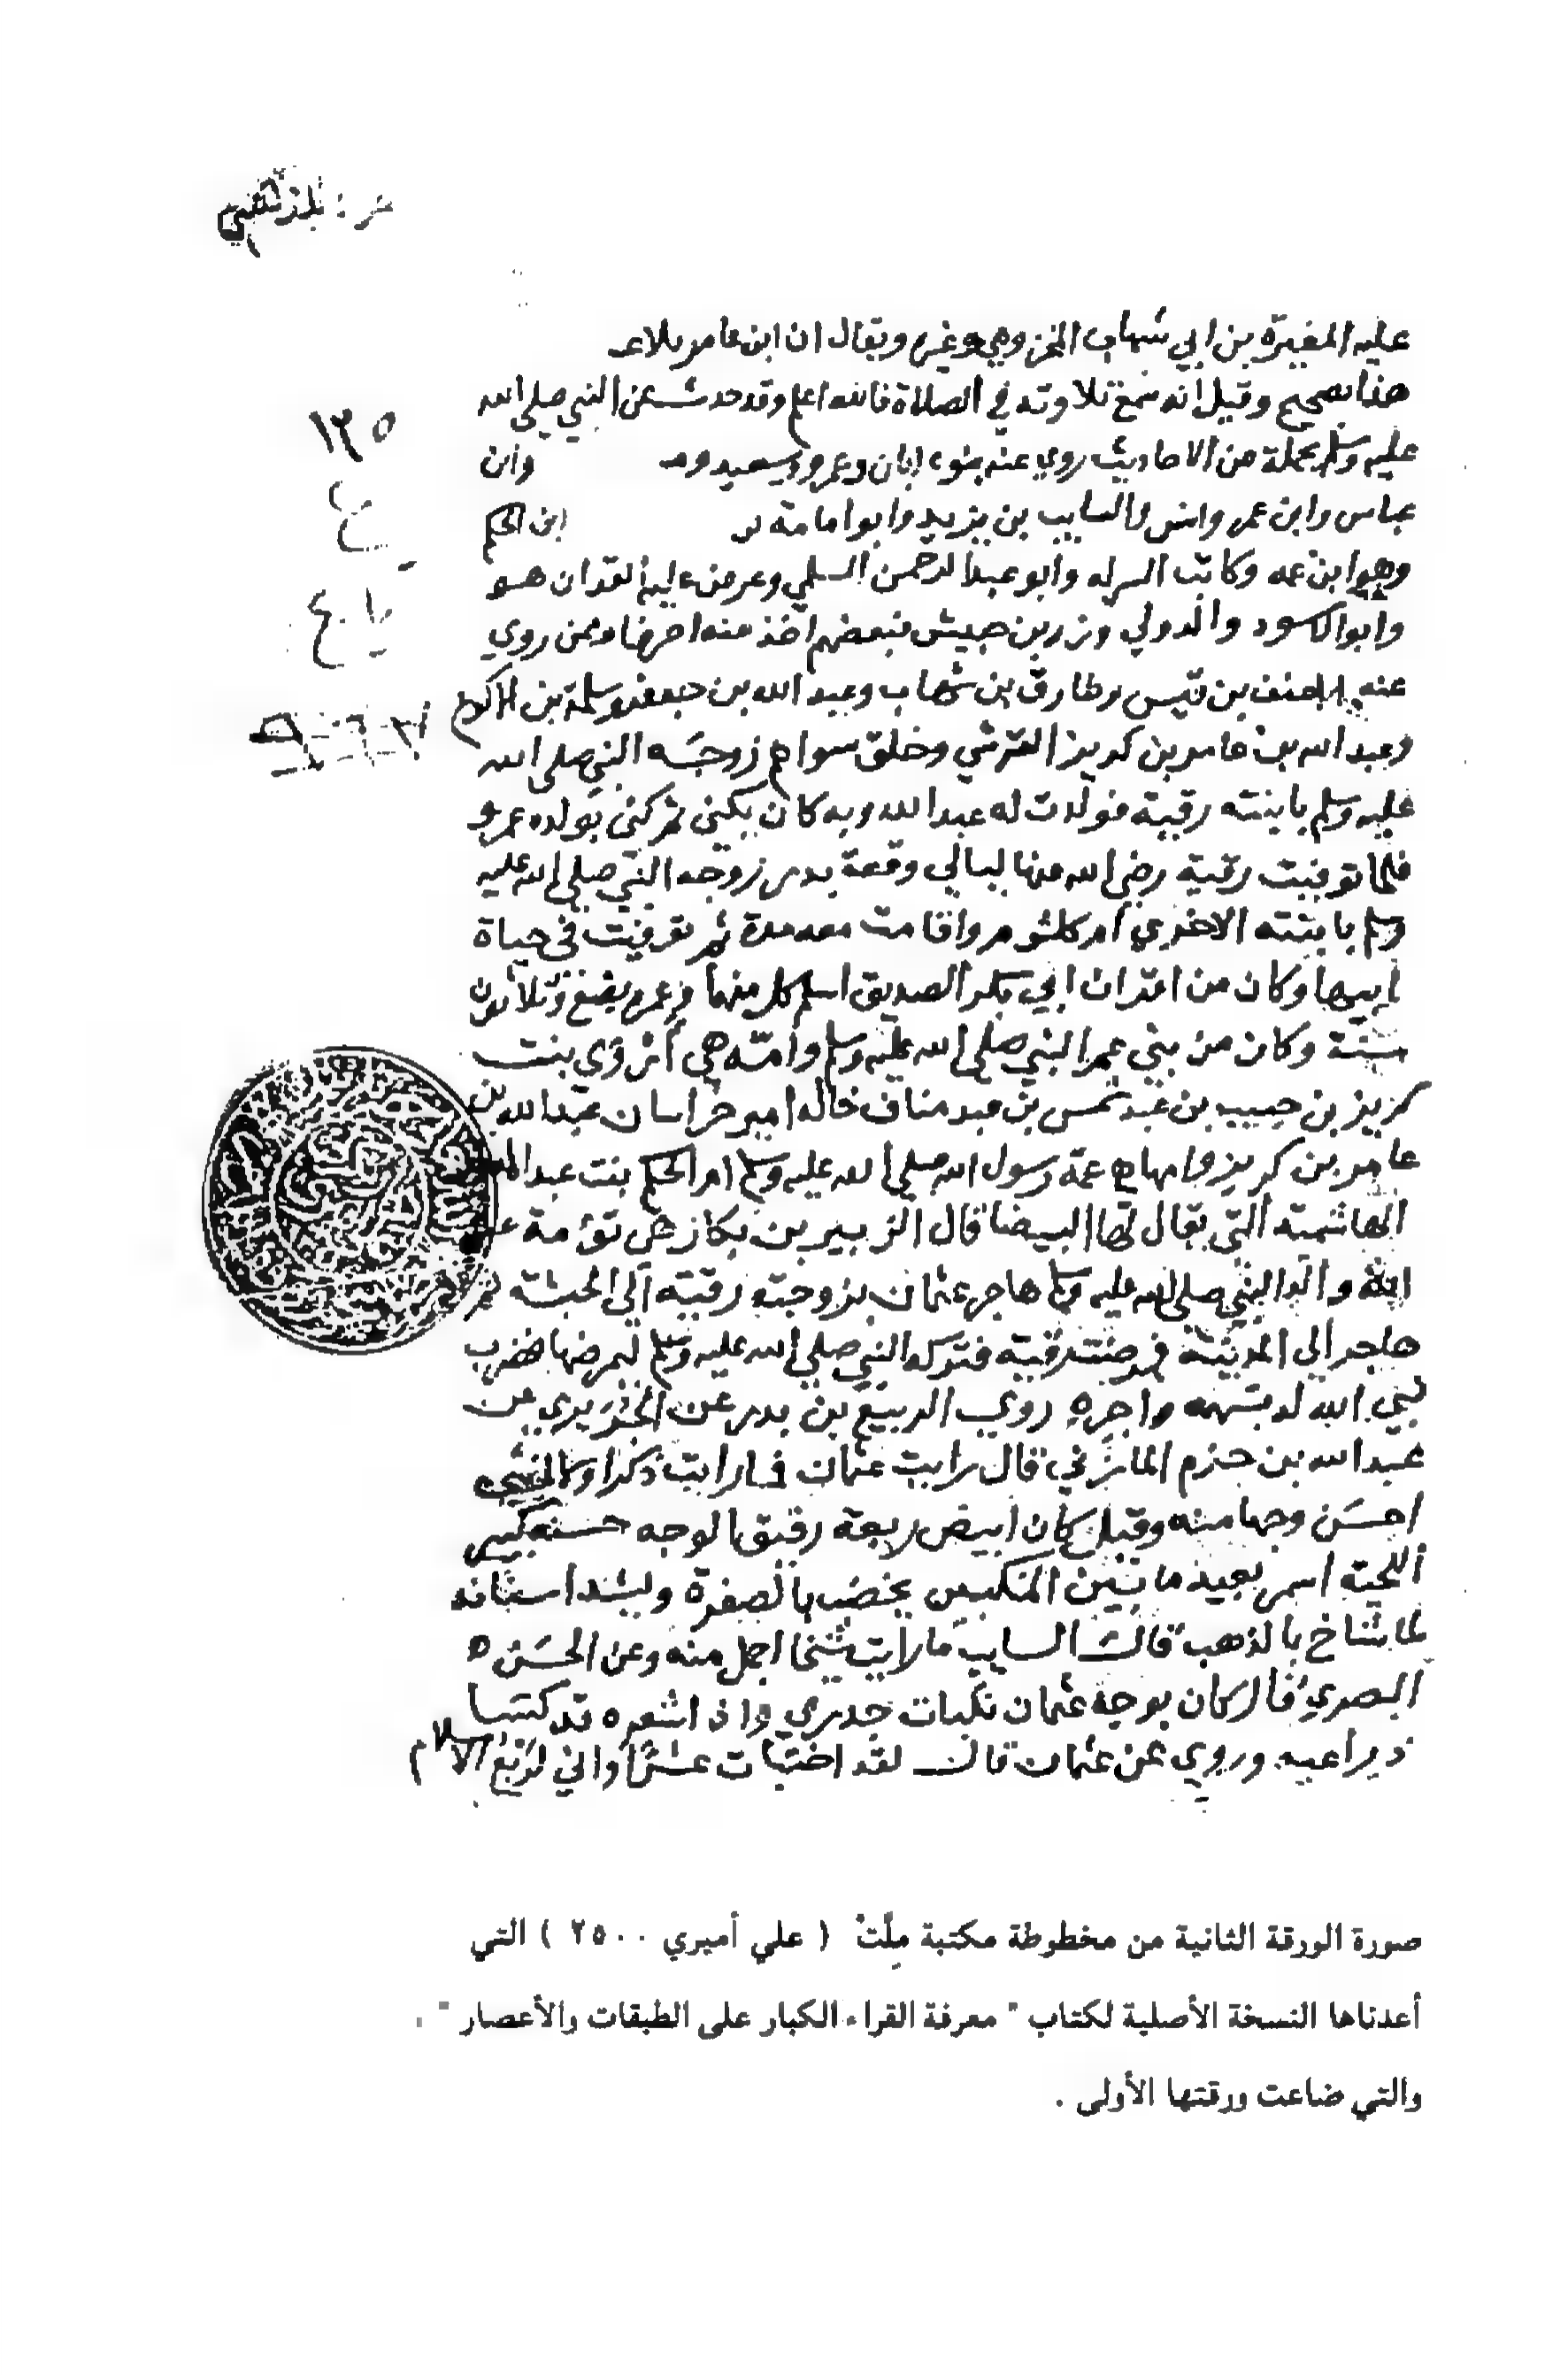 ١٣٥
عليه المغيرة بن ابي شهاب المخزومي وغيره ويقال ان ابن عامر تلا عـ
هذا بصحيح وقيل انه سمع تلاوته في الصلاة فالله اعلم وقد حدث عن النبي صلى الله
عليه وسلم بجملة من الاحاديث روي عنه بنوه ابان وعمرو وسعيد وابن
عباس وابن عمر وانس والسايب بن يزيد وابو امامة ابن الحكم
وهو ابن عمه وكاتب السر له وابو عبد الرحمن السلمي وعرض عليه القران هو
وابو الاسود والدولي وزر بن حبيش فبعضهم اخذ عنه احرفا وممن روي
عنه الاحنف بن قيس وطارق بن شهاب وعبد الله بن جعفر وسلمة بن الاكوع
وعبد الله بن عامر بن كريز القرشي وخلق سواهم زوجه النبي صلى الله
عليه وسلم بابنته رقية فولدت له عبد الله وبه كان يكنى ثم كنى بولده عمرو
فلما توفيت رقية رضي الله عنها ليالي وقعة بدر زوجه النبي صلى الله عليه
وسلم بابنته الاخرى ام كلثوم واقامت معه مدة ثم توفيت في حياة
ابيها وكان من اقران ابي بكر الصديق اسلم كل منهما وعمره بضع وثلاثون
سنة وكان من بني عم النبي صلى الله عليه وسلم وامه هي أروى بنت
كريز بن حبيب بن عبد شمس بن عبد مناف خاله امير خراسان عبد الله بن
عامر بن كريز وامها هي عمة رسول الله صلى الله عليه وسلم ام الحكم بنت عبد المطلب
الهاشمية التي يقال لها البيضا قال الزبير بن بكار هي تؤمة عبد
الله والد النبي صلى الله عليه وسلم هاجر عثمان بزوجته رقية الى الحبشة ثم
هاجر الى المدينة فمرضت رقية فتركه النبي صلى الله عليه وسلم ليمرضها فضرب
نبي الله له بسهمه واجره روى الربيع بن بدر عن الجريري عن
عبد الله بن حزم المازني قال رايت عثمان فما رايت ذكرا ولا انثى
احسن وجها منه وقيل كان ابيض ربعة رقيق الوجه حسنه كبير
اللحية اسمر بعيد ما بين المنكبين يخضب بالصفرة ويشد اسنانه
لما شاخ بالذهب قالت السايب ما رايت شيخا اجمل منه وعن الحسن
البصري قال كان بوجه عثمان نكبات جدري واذا شعره قد كسا
ذراعيه وروي عن عثمان قال لقد اختبات عشرا واني لربع الاسلام
صورة الورقة الثانية من مخطوطة مكتبة مِلّتْ ( علي أميري ٢٥٠٠ ) التي
أعدناها النسخة الأصلية لكتاب " معرفة القراء الكبار على الطبقات والأعصار " .
والتي ضاعت ورقتها الأولى .